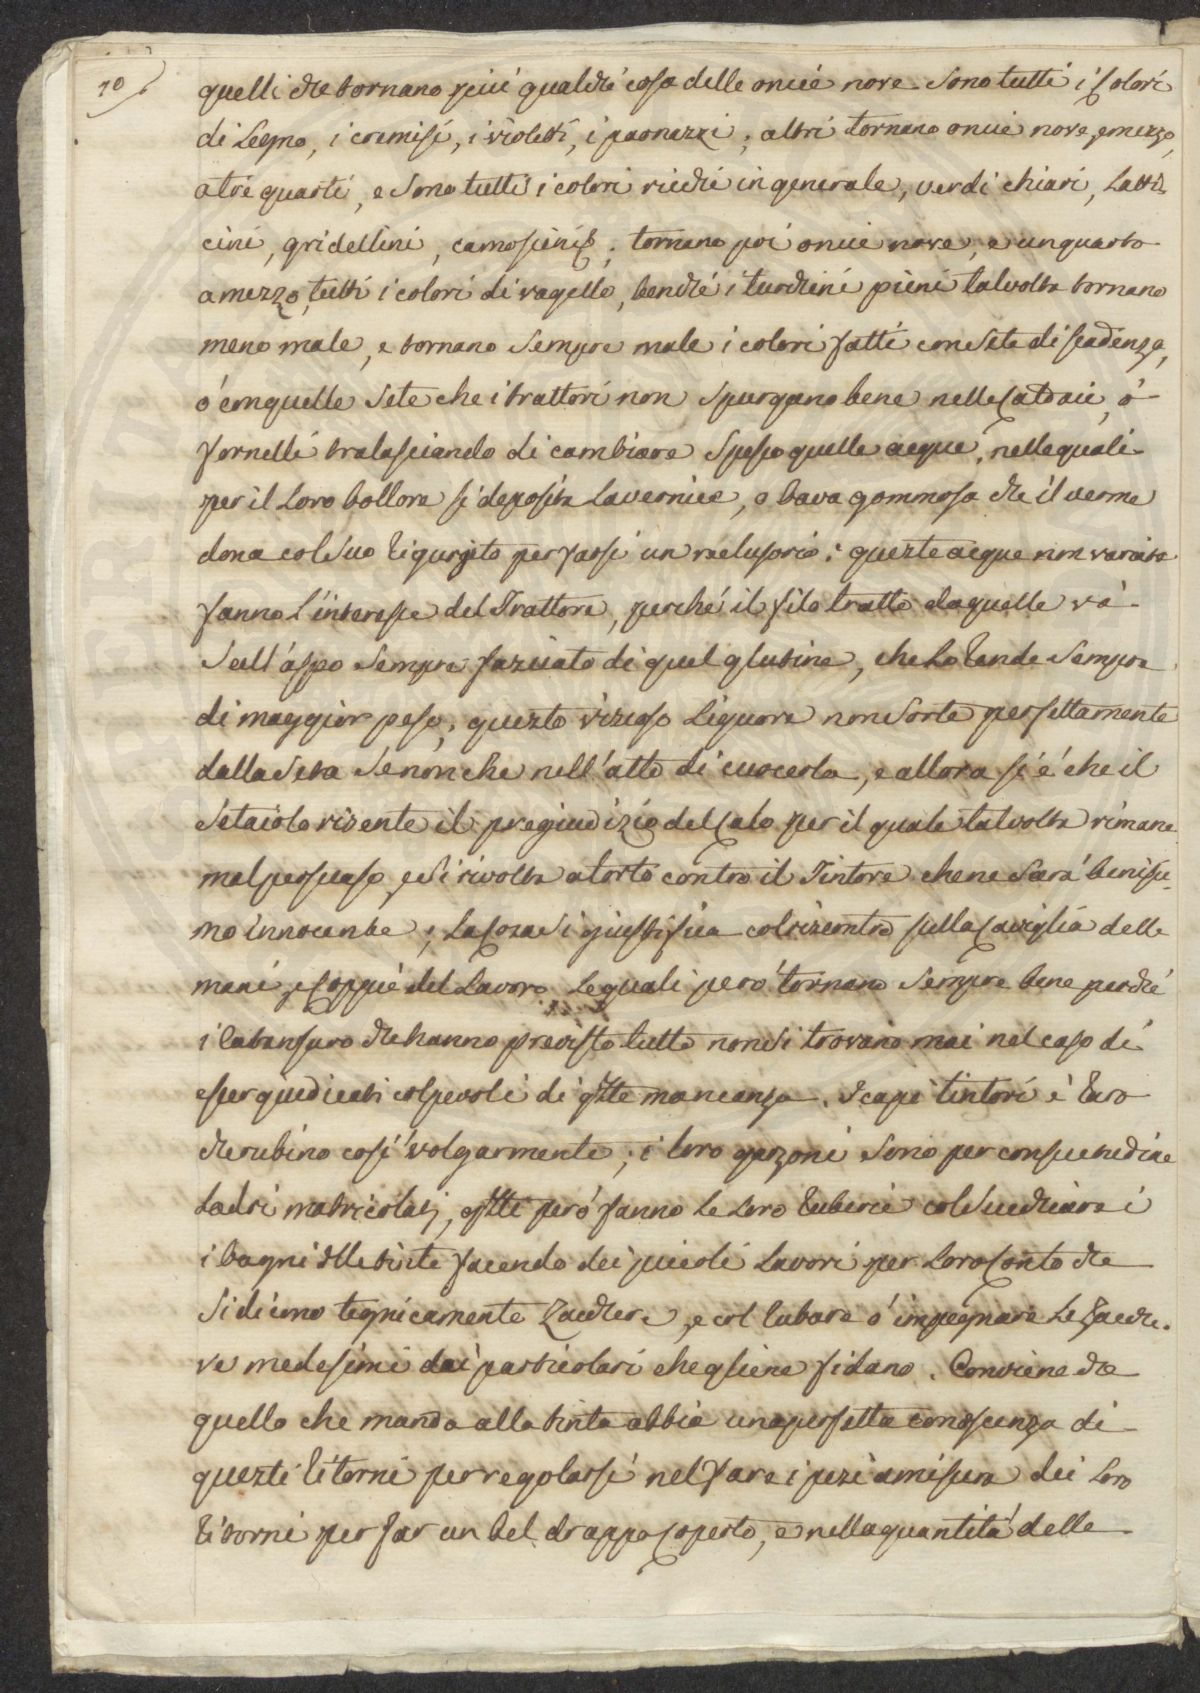 70
quelli che tornano più qualché cosa delle oncie nove sono tutti i Colori
di Legno, i cremisi, i violetti, i paonazzi; altri tornano oncie nove, e mezzo,
a tre quarti, e sono tutti i colori ricchi in generale, verdi chiari, Latti-
cini, gridellini, camoscini; tornano poi oncie nove, e un quarto
a mezzo, tutti i colori di vagello, benché i turchini pieni talvolta tornano
meno male, e tornano sempre male i colori fatti con Sete di scadenza,
ó con quelle Sete che i trattori non spurgano bene nelle Caldaie, ó
fornelli tralasciando di cambiare spesso quelle acque, nelle quali
per il Loro bollore si deposita La vernice, o bava gommosa che il verme
dona col Suo Rigurgito per farsi un reclusorio; queste acque non variate
fanno L'interesse del Trattore, perché il filo tratto da quelle và
Sull'aspo Sempre saziato di quel glutine, che Lo Rende Sempre
di maggior peso; questo viscoso Liquore non Sorte perfettamente
dalla Seta Se non che nell'atto di cuocerla, e allora si é che il
Setaiolo risente il pregiudizio del Calo per il quale talvolta rimane
mal persuaso, e Si rivolta a torto contro il Tintore che ne Sará benissi-
mo innocente; La Cosa Si giustifica col riscontro sulla Caviglia delle
mani, e Coppie del Lavoro Le quali peró tornano Sempre bene perché
i che hanno previsto tutto non Si trovano mai nel caso di
esser giudicati colpevoli di qste mancanza. I capi tintori é Raro
che rubino cosi volgarmente; i loro garzoni Sono per consuetudine
Ladri matricolati, qsti peró fanno Le Loro Ruberie col Succhiare i
i bagni dlle tinte facendo dei piccoli Lavori per Loro Conto che
Si dicono tegnicamente Zacchere, e col Rubare ó impegnare Le Zacche-
re medesimi dai particolari che gliene fidano. Conviene che
quello che manda alla tinta abbia una perfetta conoscenza di
questi Ritorni per regolarsi nel fare i pesi a misura dei Loro
Ritorni per far un bel drappo Coperto, e nella quantitá delle